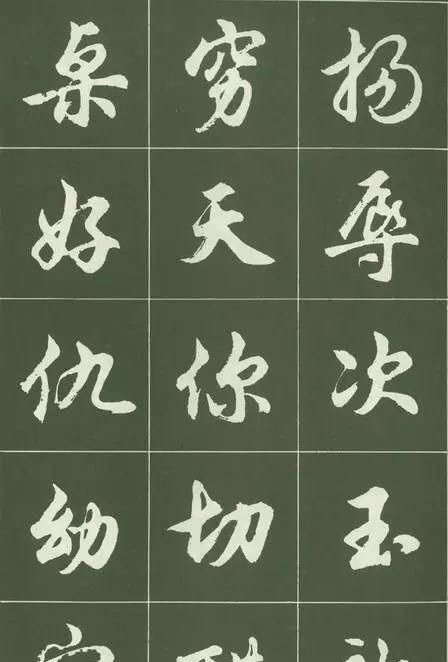 扬辱次玉
穷天你切
桌好仇幼